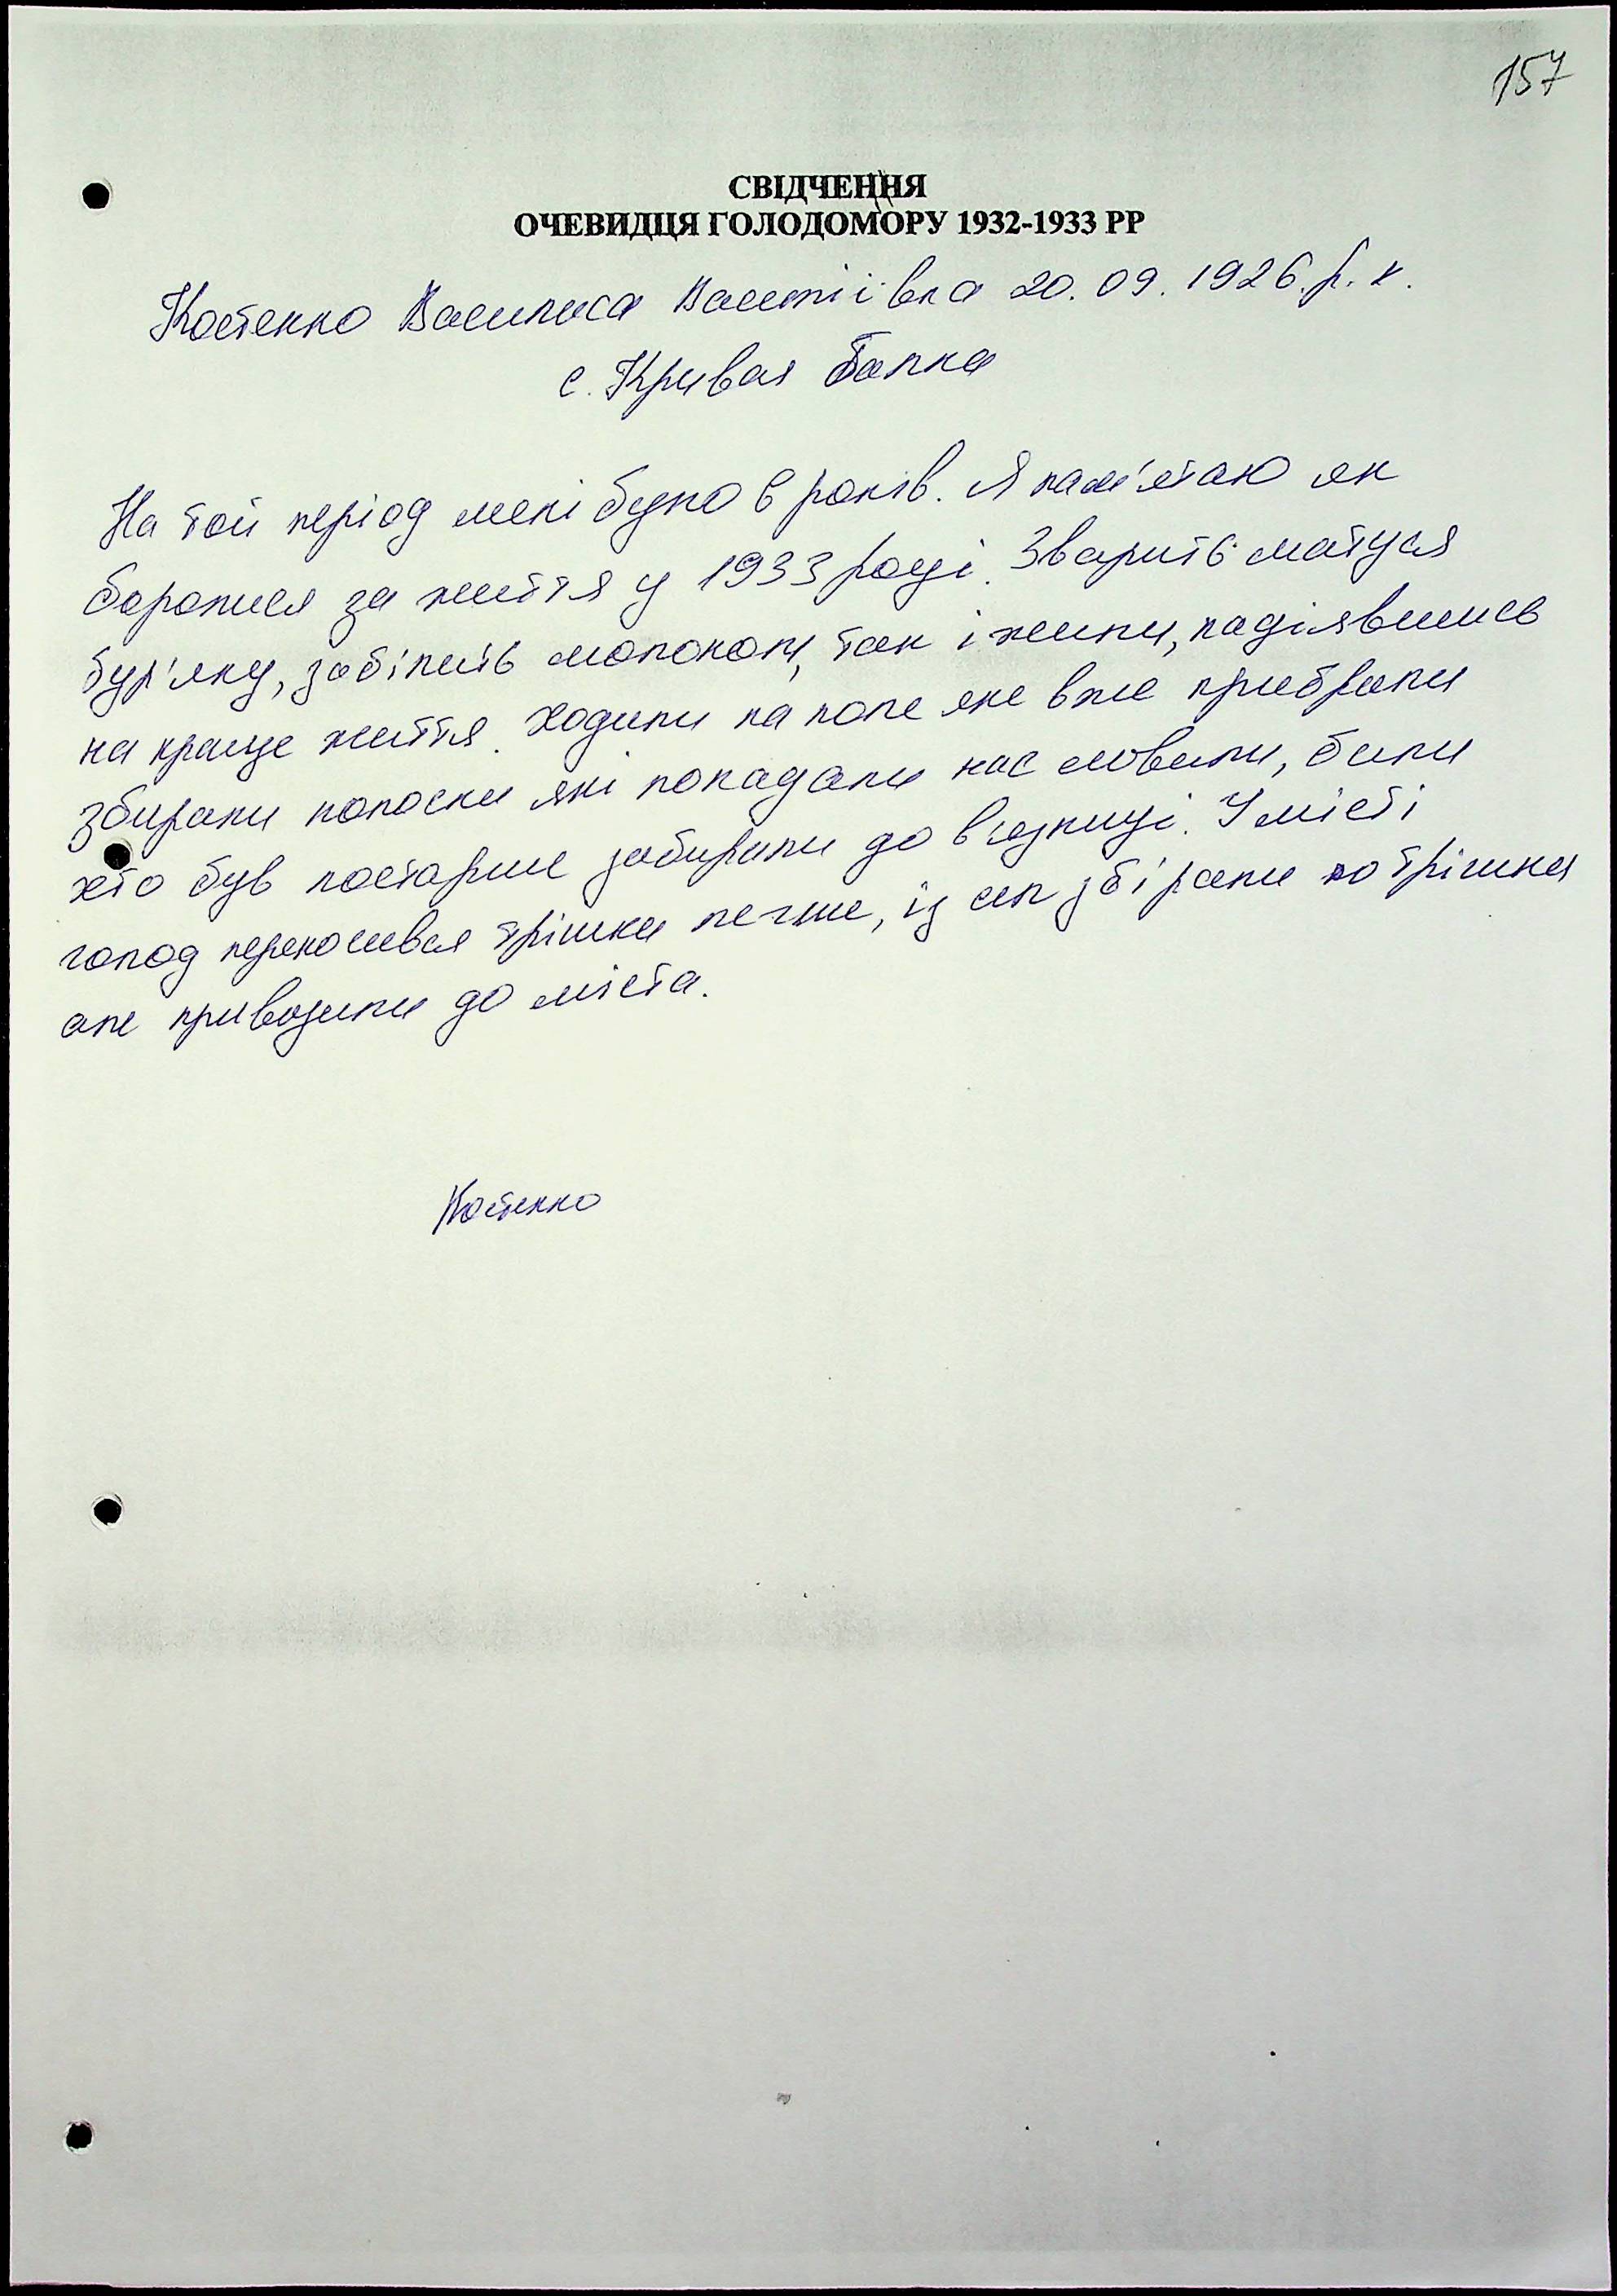 157
СВІДЧЕННЯ
ОЧЕВИДЦЯ ГОЛОДОМОРУ 1932-1933 РР
Костенко Василиса 20.09.1926.р.н.
с. Кривая Балка
На той період мені було 6 років. Я пам'ятаю як
боролися за життя у 1933 році. Зварить матуся
бур'яку, забілить молоком, так і жили, надіявшись
на краще життя. Ходили на поле яке вже прибрали
збирали колоски які попадали нас ловили, били
хто був постарше забирали до в'язниці. У місті
голод переносився трішки легше, із сел збірали по трішки
але привозили до міста.
Костенко